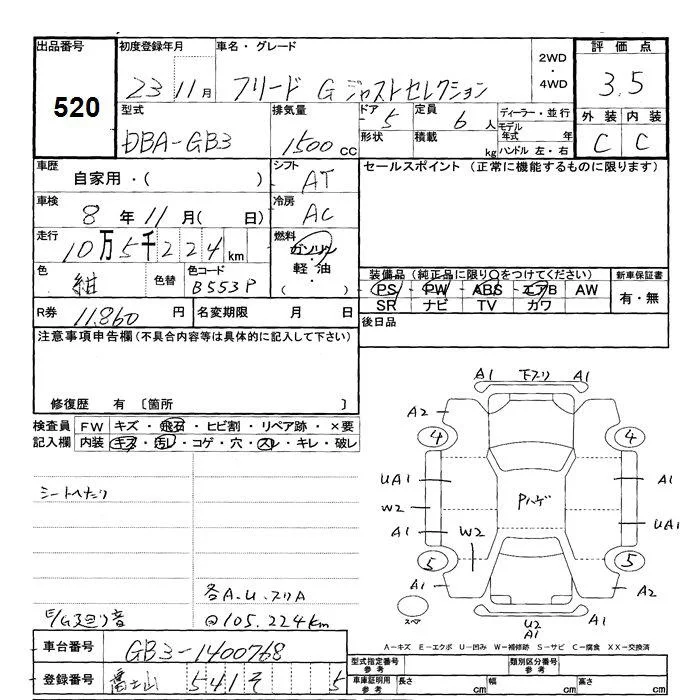 出品番号 初度登録年月 車名・グレード 2WD・4WD 評価点
520 23 11月 フリード G ジャストセレクション 3.5
型式 排気量 ドア 定員 ディーラー・並行 外装 内装
DBA-GB3 1500cc 5 6人 モデル年式 年 C C
形状 積載 kg ハンドル 左・右
車歴 シフト セールスポイント (正常に機能するものに限ります)
自家用・( ) AT
車検 冷房
8年11月( 日) AC
走行 燃料
10万5千224km ガソリン・軽油
( )
色 色替 色コード 装備品(純正品に限り○をつけてください) 新車保証書
紺 B553P PS PW ABS エアB AW 有・無
SR ナビ TV カワ
R券 11,860円 名変期限 月 日 後日品
注意事項申告欄(不具合内容等は具体的に記入して下さい)
修復歴 有 〔箇所 〕
検査員記入欄 FW キズ・飛石・ヒビ割・リペア跡・×要
内装 キズ・汚レ・コゲ・穴・スレ・キレ・破レ
シートヘタリ
各A.U.スリA
E/G廻り音 @105,224km
A1 下スリ A1
A2
4 4
UA1 A1
W2 Pハゲ
A1 UA1
W2
5 5
A1 A2
スペ
U2
A1
A-キズ E-エクボ U-凹み W-補修跡 S-サビ C-腐食 XX-交換済
車台番号 GB3-1400768
型式指定番号 参考 類別区分番号 参考
登録番号 富士山 541 そ 5
車庫証明用 参考 長さ cm 幅 cm 高さ cm